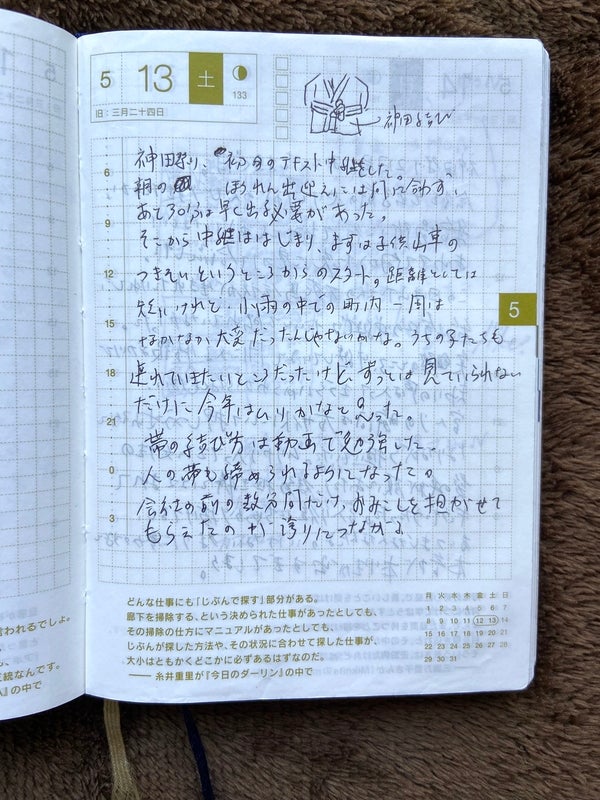 5 13 土
133
旧:三月二十四日
神田結び
6
9
12
15
18
21
0
3
5
神田祭り、初日のテキスト中継をした。
朝の ほうれん出迎えには間に合わず、
あと30分は早く出る必要があった。
そこから中継ははじまり、まずは子供山車の
つきそいというところからのスタート。距離としては
短いけれど、小雨の中での町内一周は
なかなか大変だったんじゃないかな。うちの子たちも
連れていきたいところだったけど、ずっとは見ていられない
だけに今年はムリかなと思った。
帯の結び方は動画で勉強した。
人の帯も締められるようになった。
会社の前の数分間だけ、おみこしを担がせて
もらえたのが誇りにつながる
どんな仕事にも「じぶんで探す」部分がある。
廊下を掃除する、という決められた仕事があったとしても、
その掃除の仕方にマニュアルがあったとしても、
じぶんが探した方法や、その状況に合わせて探した仕事が、
大小はともかくどこかに必ずあるはずなのだ。
―― 糸井重里が『今日のダーリン』の中で
月 火 水 木 金 土 日
1 2 3 4 5 6 7
8 9 10 11 12 13 14
15 16 17 18 19 20 21
22 23 24 25 26 27 28
29 30 31
言われるでしょ。
続なんです。
』の中で